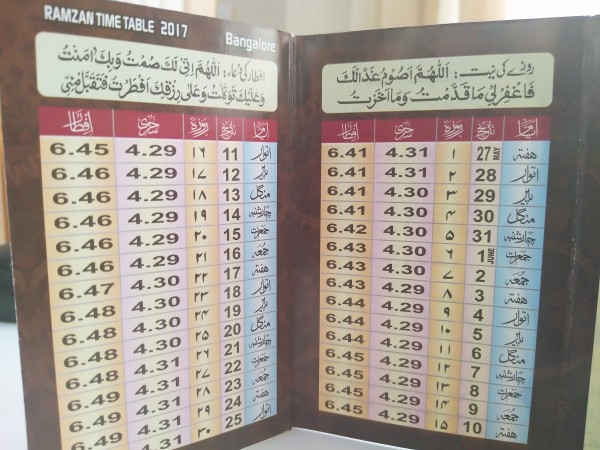 RAMZAN TIME TABLE 2017
Bangalore
افطار کی دعاء: اَللّٰهُمَّ اِنِّی لَكَ صُمْتُ وَبِكَ اٰمَنْتُ
وَعَلَيْكَ تَوَكَّلْتُ وَعَلٰی رِزْقِكَ اَفْطَرْتُ فَتَقَبَّلْ مِنِّی
ایام تاریخ روزہ سحری افطار
اتوار 11 ۱۶ 4.29 6.45
پیر 12 ۱۷ 4.29 6.46
منگل 13 ۱۸ 4.29 6.46
چہارشنبہ 14 ۱۹ 4.29 6.46
جمعرات 15 ۲۰ 4.29 6.46
جمعہ 16 ۲۱ 4.29 6.46
ہفتہ 17 ۲۲ 4.30 6.47
اتوار 18 ۲۳ 4.30 6.47
پیر 19 ۲۴ 4.30 6.48
منگل 20 ۲۵ 4.30 6.48
چہارشنبہ 21 ۲۶ 4.31 6.48
جمعرات 22 ۲۷ 4.31 6.49
جمعہ 23 ۲۸ 4.31 6.49
ہفتہ 24 ۲۹ 4.31 6.49
اتوار 25 ۳۰
روزے کی نیت: اَللّٰهُمَّ اَصُوْمُ غَدًا لَّكَ
فَاغْفِرْلِیْ مَا قَدَّمْتُ وَمَا اَخَّرْتُ
ایام تاریخ روزہ سحری افطار
ہفتہ 27 MAY ۱ 4.31 6.41
اتوار 28 ۲ 4.31 6.41
پیر 29 ۳ 4.30 6.41
منگل 30 ۴ 4.30 6.41
چہارشنبہ 31 ۵ 4.30 6.42
جمعرات 1 JUNE ۶ 4.30 6.43
جمعہ 2 ۷ 4.30 6.43
ہفتہ 3 ۸ 4.29 6.43
اتوار 4 ۹ 4.29 6.44
پیر 5 ۱۰ 4.29 6.44
منگل 6 ۱۱ 4.29 6.44
چہارشنبہ 7 ۱۲ 4.29 6.45
جمعرات 8 ۱۳ 4.29 6.45
جمعہ 9 ۱۴ 4.29 6.45
ہفتہ 10 ۱۵ 4.29 6.45